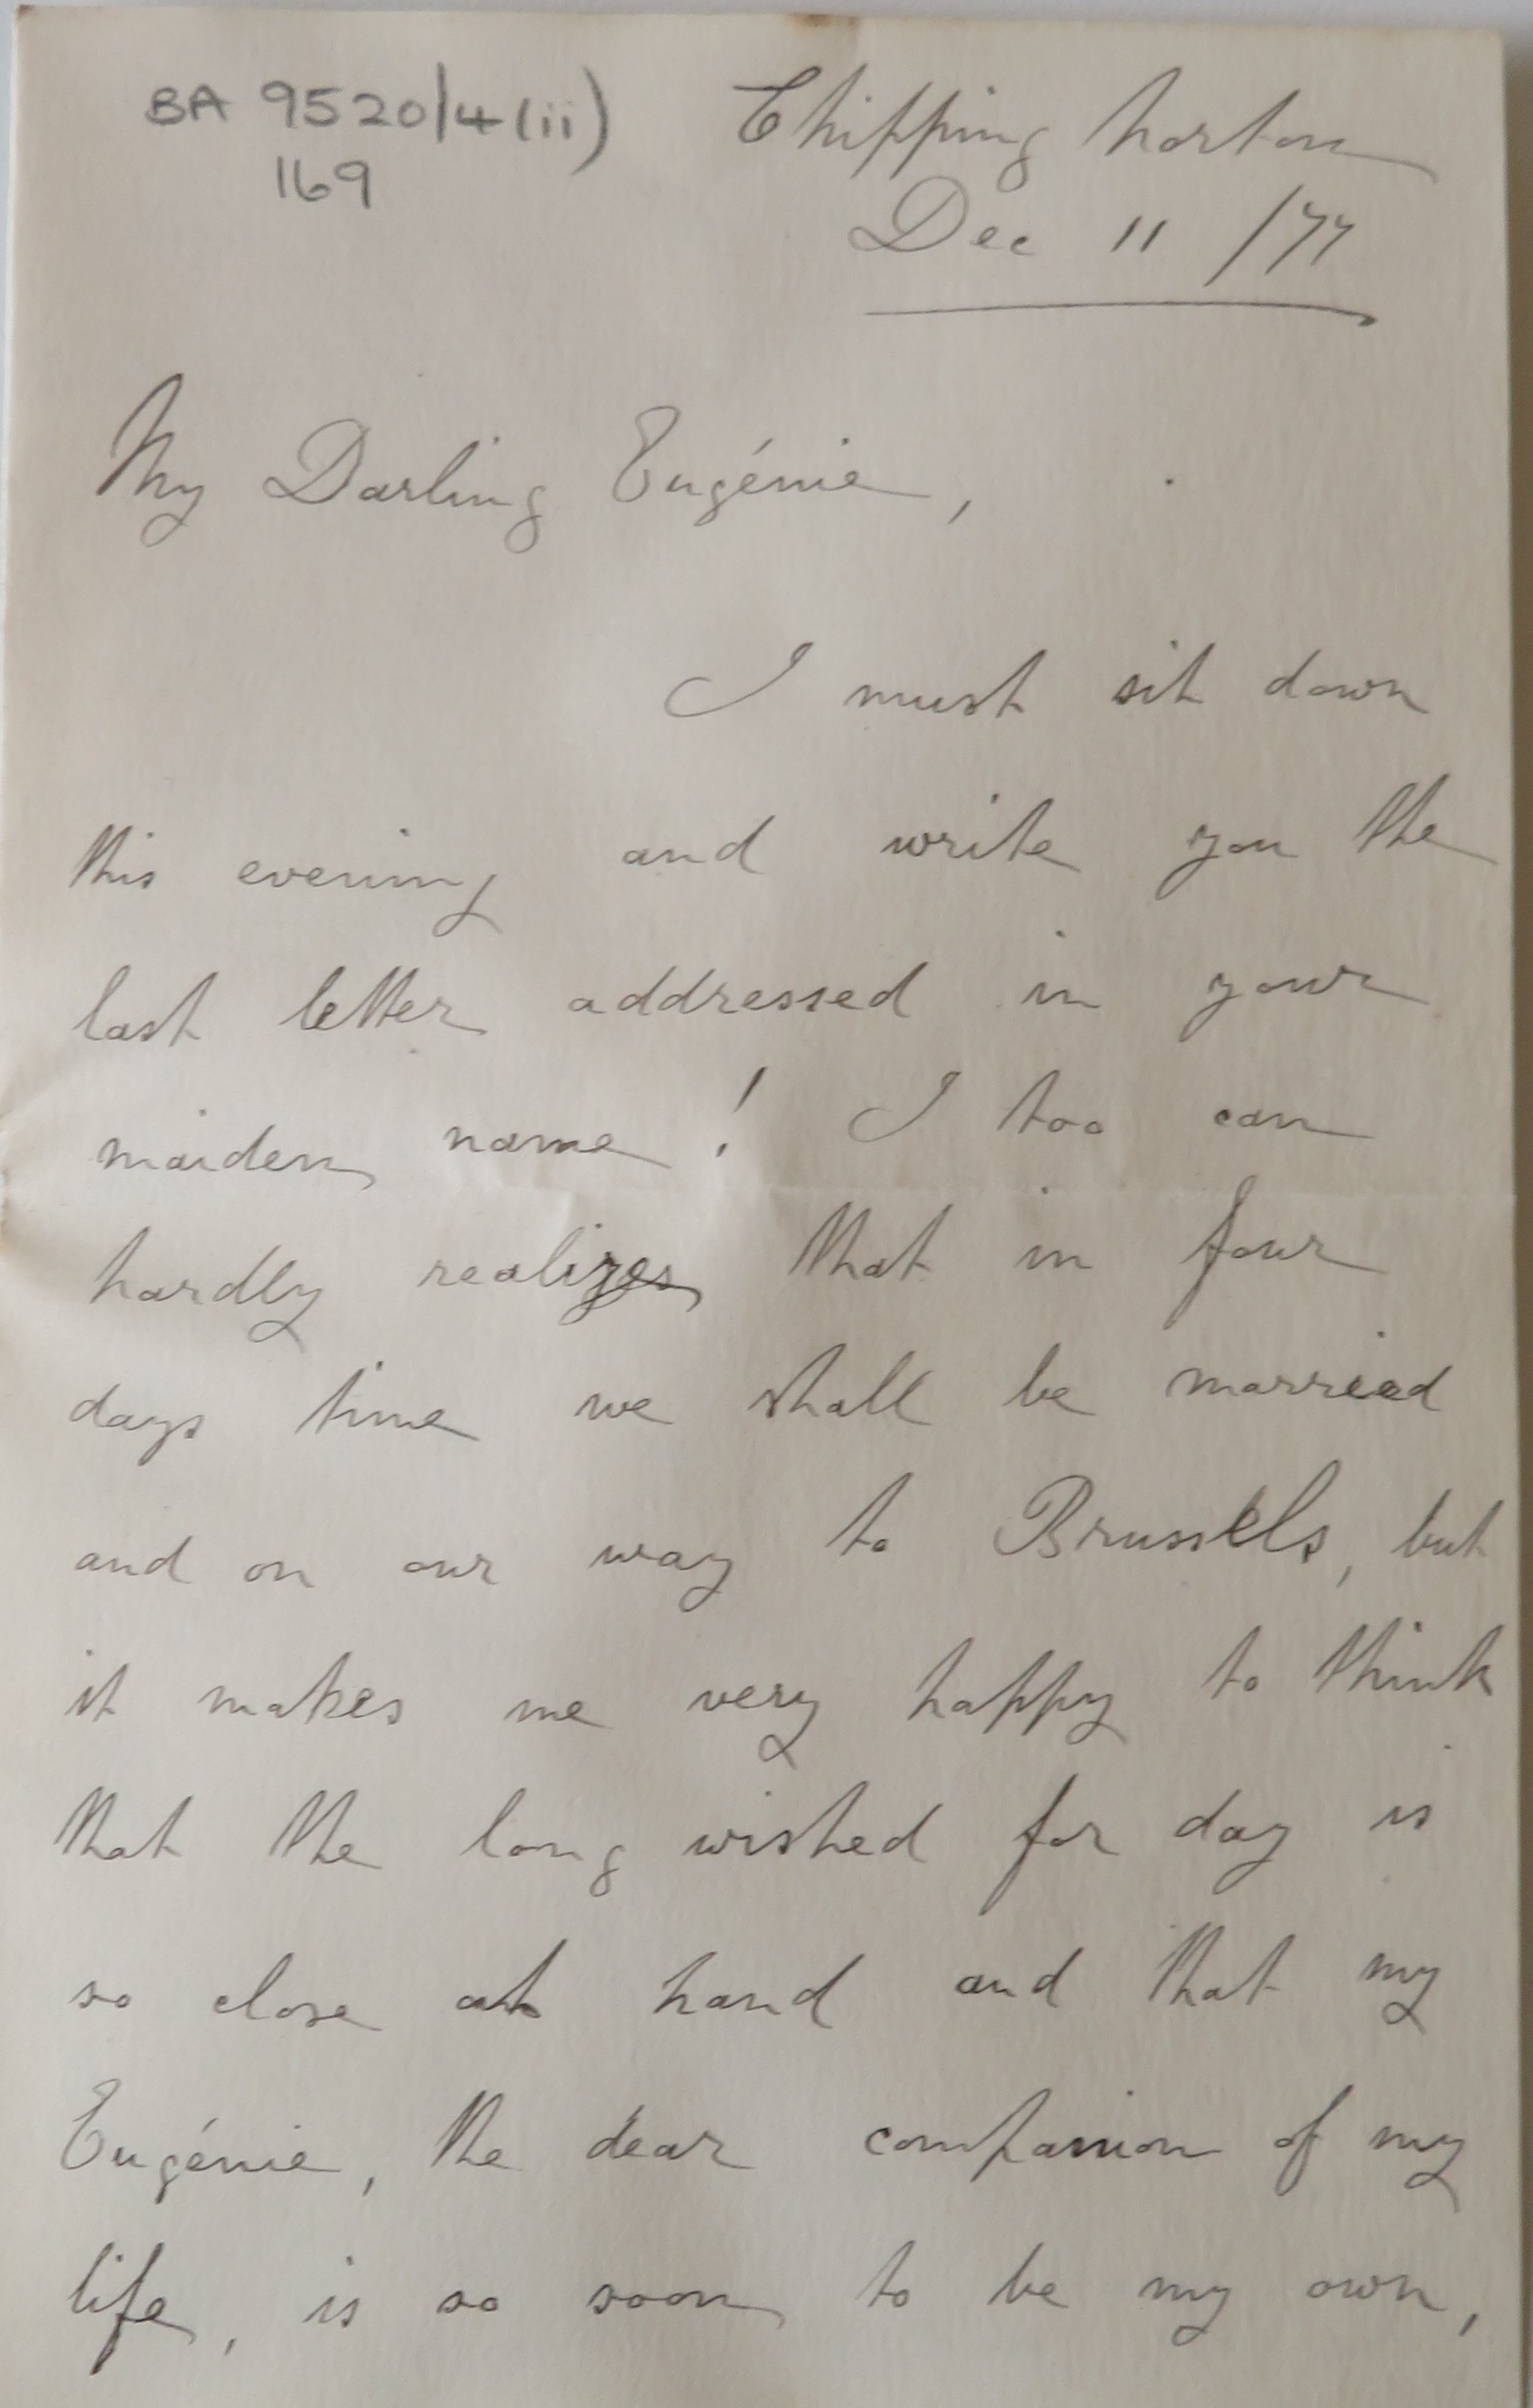 BA 9520/4(ii)
169
Chipping Norton
Dec 11 /77
My Darling Eugénie,
I must sit down
this evening and write you the
last letter addressed in your
maiden name! I too can
hardly realizes that in four
days time we shall be married
and on our way to Brussels, but
it makes me very happy to think
that the long wished for day is
so close at hand and that my
Eugénie, the dear companion of my
life, is so soon to be my own,